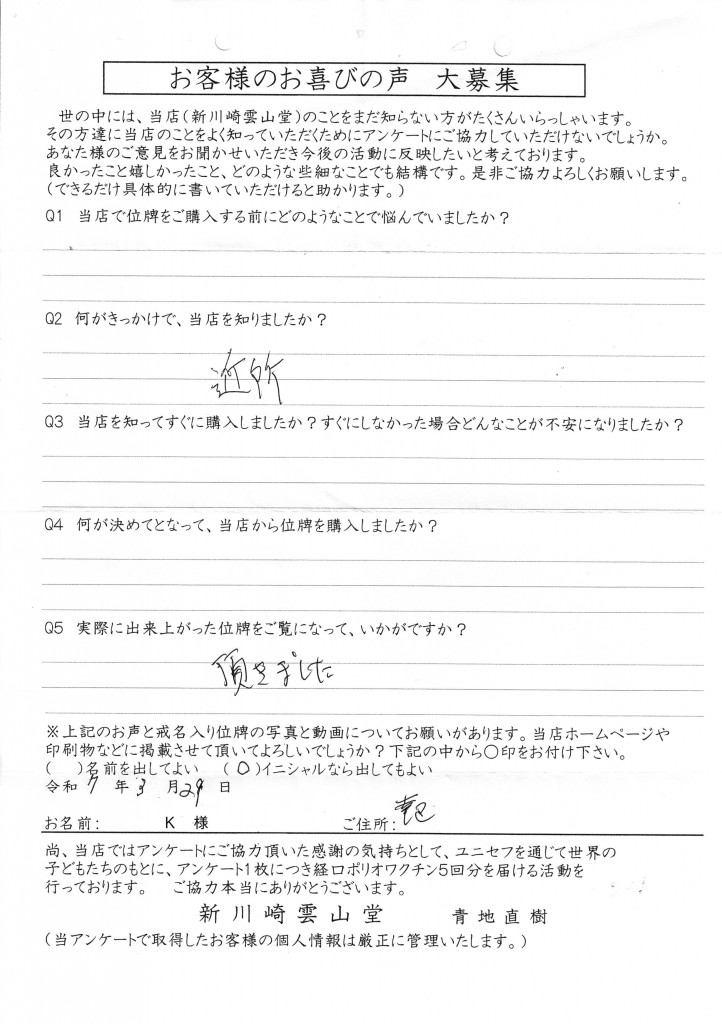 お客様のお喜びの声 大募集
世の中には、当店(新川崎雲山堂)のことをまだ知らない方がたくさんいらっしゃいます。
その方達に当店のことをよく知っていただくためにアンケートにご協力していただけないでしょうか。
あなた様のご意見をお聞かせいただき今後の活動に反映したいと考えております。
良かったこと嬉しかったこと、どのような些細なことでも結構です。是非ご協力よろしくお願いします。
(できるだけ具体的に書いていただけると助かります。)
Q1 当店で位牌をご購入する前にどのようなことで悩んでいましたか?
Q2 何がきっかけで、当店を知りましたか?
近所
Q3 当店を知ってすぐに購入しましたか?すぐにしなかった場合どんなことが不安になりましたか?
Q4 何が決めてとなって、当店から位牌を購入しましたか?
Q5 実際に出来上がった位牌をご覧になって、いかがですか?
頂きました
※上記のお声と戒名入り位牌の写真と動画についてお願いがあります。当店ホームページや
印刷物などに掲載させて頂いてよろしいでしょうか?下記の中から〇印をお付け下さい。
( )名前を出してよい (○)イニシャルなら出してもよい
令和 7 年 3 月 29 日
お名前: K 様 ご住所:
尚、当店ではアンケートにご協力頂いた感謝の気持ちとして、ユニセフを通じて世界の
子どもたちのもとに、アンケート1枚につき経口ポリオワクチン5回分を届ける活動を
行っております。 ご協力本当にありがとうございます。
新川崎雲山堂 青地直樹
(当アンケートで取得したお客様の個人情報は厳正に管理いたします。)